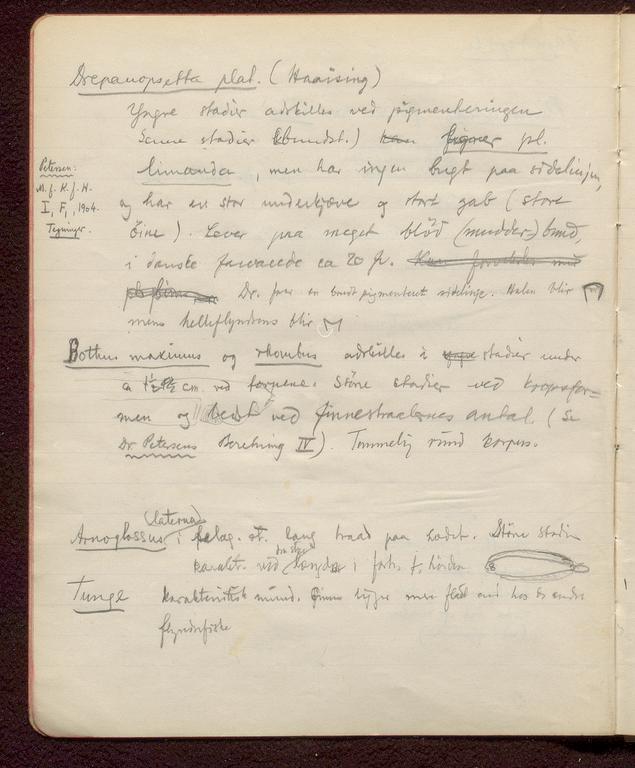 Drepanopsetta plat. (Haaising)
Yngre stadier adskilles ved pigmenteringen
Senere stadier (bundst.) kan figner pl.
limanda, men har ingen bugt paa sidelinjen,
Petersen:
M. f. K. f. H.
I, F, 1904.
Tegninger.
og har en stor underkjæve og stort gab (store
öine). Lever paa meget blöd (mudder-) bund,
i danske farvande ca 20 fv.
Dr. har en bredt pigmenteret sidelinje. Halen blir
mens helleflyndrens blir
Bothus maximus og rhombus adskilles i stadier under
ca cm ved farvene. Större stadier ved kropsfor=
men og bedst ved finnestraalernes antal. (Se
Dr Petersens Beretning IV). Temmelig rund korpus.
laterna
Arnoglossus i pelag. st. lang traad paa hodet. Större stadier
karakt. ved den store længde i forh. t. höiden
Tunge karakteristisk mund. ligger mer flad end hos de andre
flyndrefiske